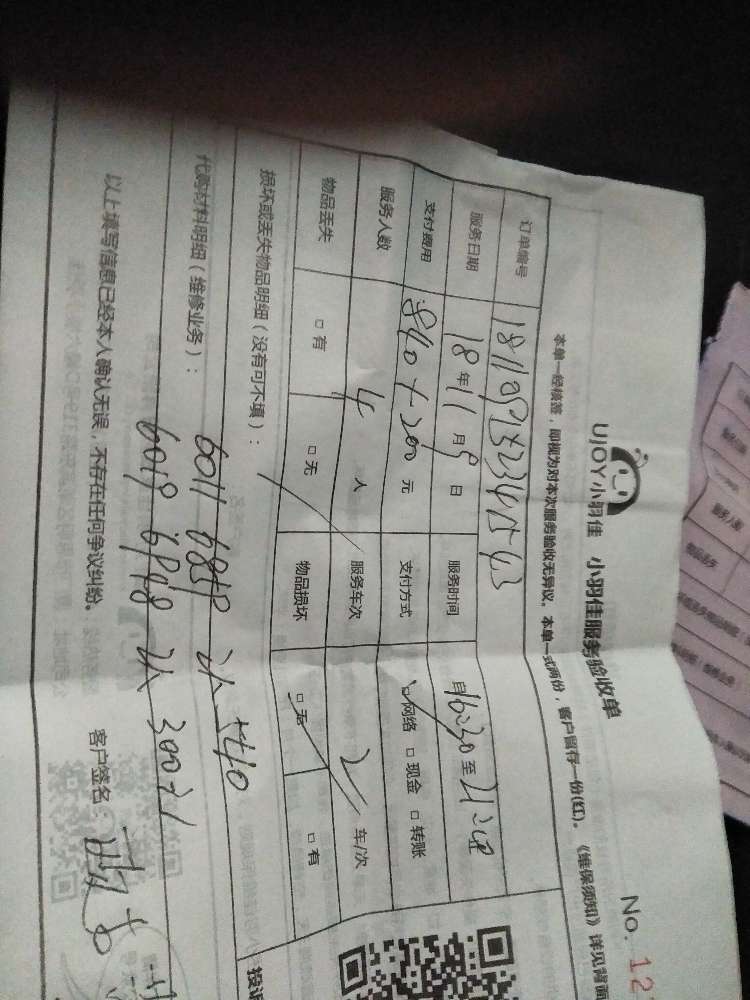 UJOY小羽佳 小羽佳服务验收单
No. 12
本单一经核签，即视为对本次服务验收无异议。本单一式两份，客户留存一份(红)。《维保须知》详见背面
订单编号
服务日期 18年11月9日 服务时间 自16:30至
支付费用 840+300元 支付方式 □网络 □现金 □转账
服务人数 4人 服务车次 2车/次
物品丢失 □有 □无 物品损坏 □无 □有
损坏或丢失物品明细（没有可不填）：
代购材料明细（维修业务）：
6011 6859 认 540
6019 6918 认 300元
以上填写信息已经本人确认无误，不存在任何争议纠纷。 客户签名：
投诉